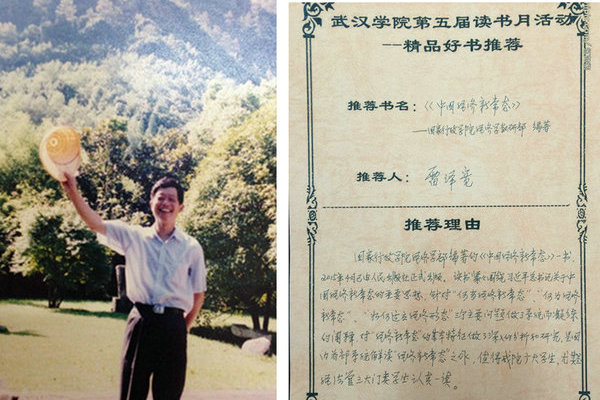 武汉学院第五届读书月活动
---精品好书推荐
推荐书名：《中国经济新常态》
——国家行政学院经济学教研部 编著
推荐人：
推荐理由
国家行政学院经济学教研部编著的《中国经济新常态》一书，
2015年4月已由人民出版社正式出版。该书围绕习近平总书记关于中
国经济新常态的重要思想，针对“何为经济新常态”、“何为经济
新常态”、“如何适应经济新常态”等主要问题做了系统而凝练
的阐释，对“经济新常态”的基本特征做了深入分析和研究，是国
内首部系统解读“经济新常态”之作，值得我院广大学生，尤其
经法管三大门类学生认真一读。